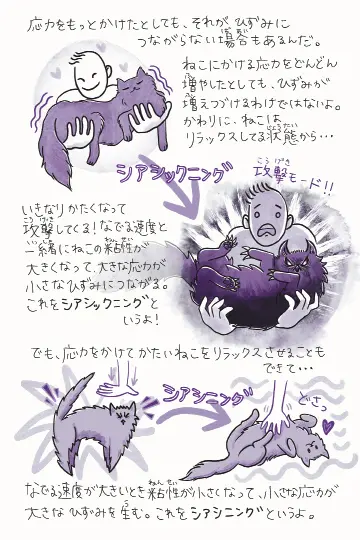 応力をもっとかけたとしても、それが ひずみに
つながらない場合もあるんだ。
ねこにかける応力をどんどん
増やしたとしても、ひずみが
増えつづけるわけではないよ。
かわりに、ねこは
リラックスしてる状態から…
シアシックニング
攻撃モード!!
いきなりかたくなって
攻撃してくる!なでる速度と
一緒にねこの粘性が
大きくなって、大きな応力が
小さなひずみにつながる。
これをシアシックニングと
いうよ!
でも、応力をかけてかたいねこをリラックスさせることも
できて…
シアシニング
どさっ
なでる速度が大きいとき粘性が小さくなって、小さな応力が
大きな ひずみを生む。これをシアシニングというよ。